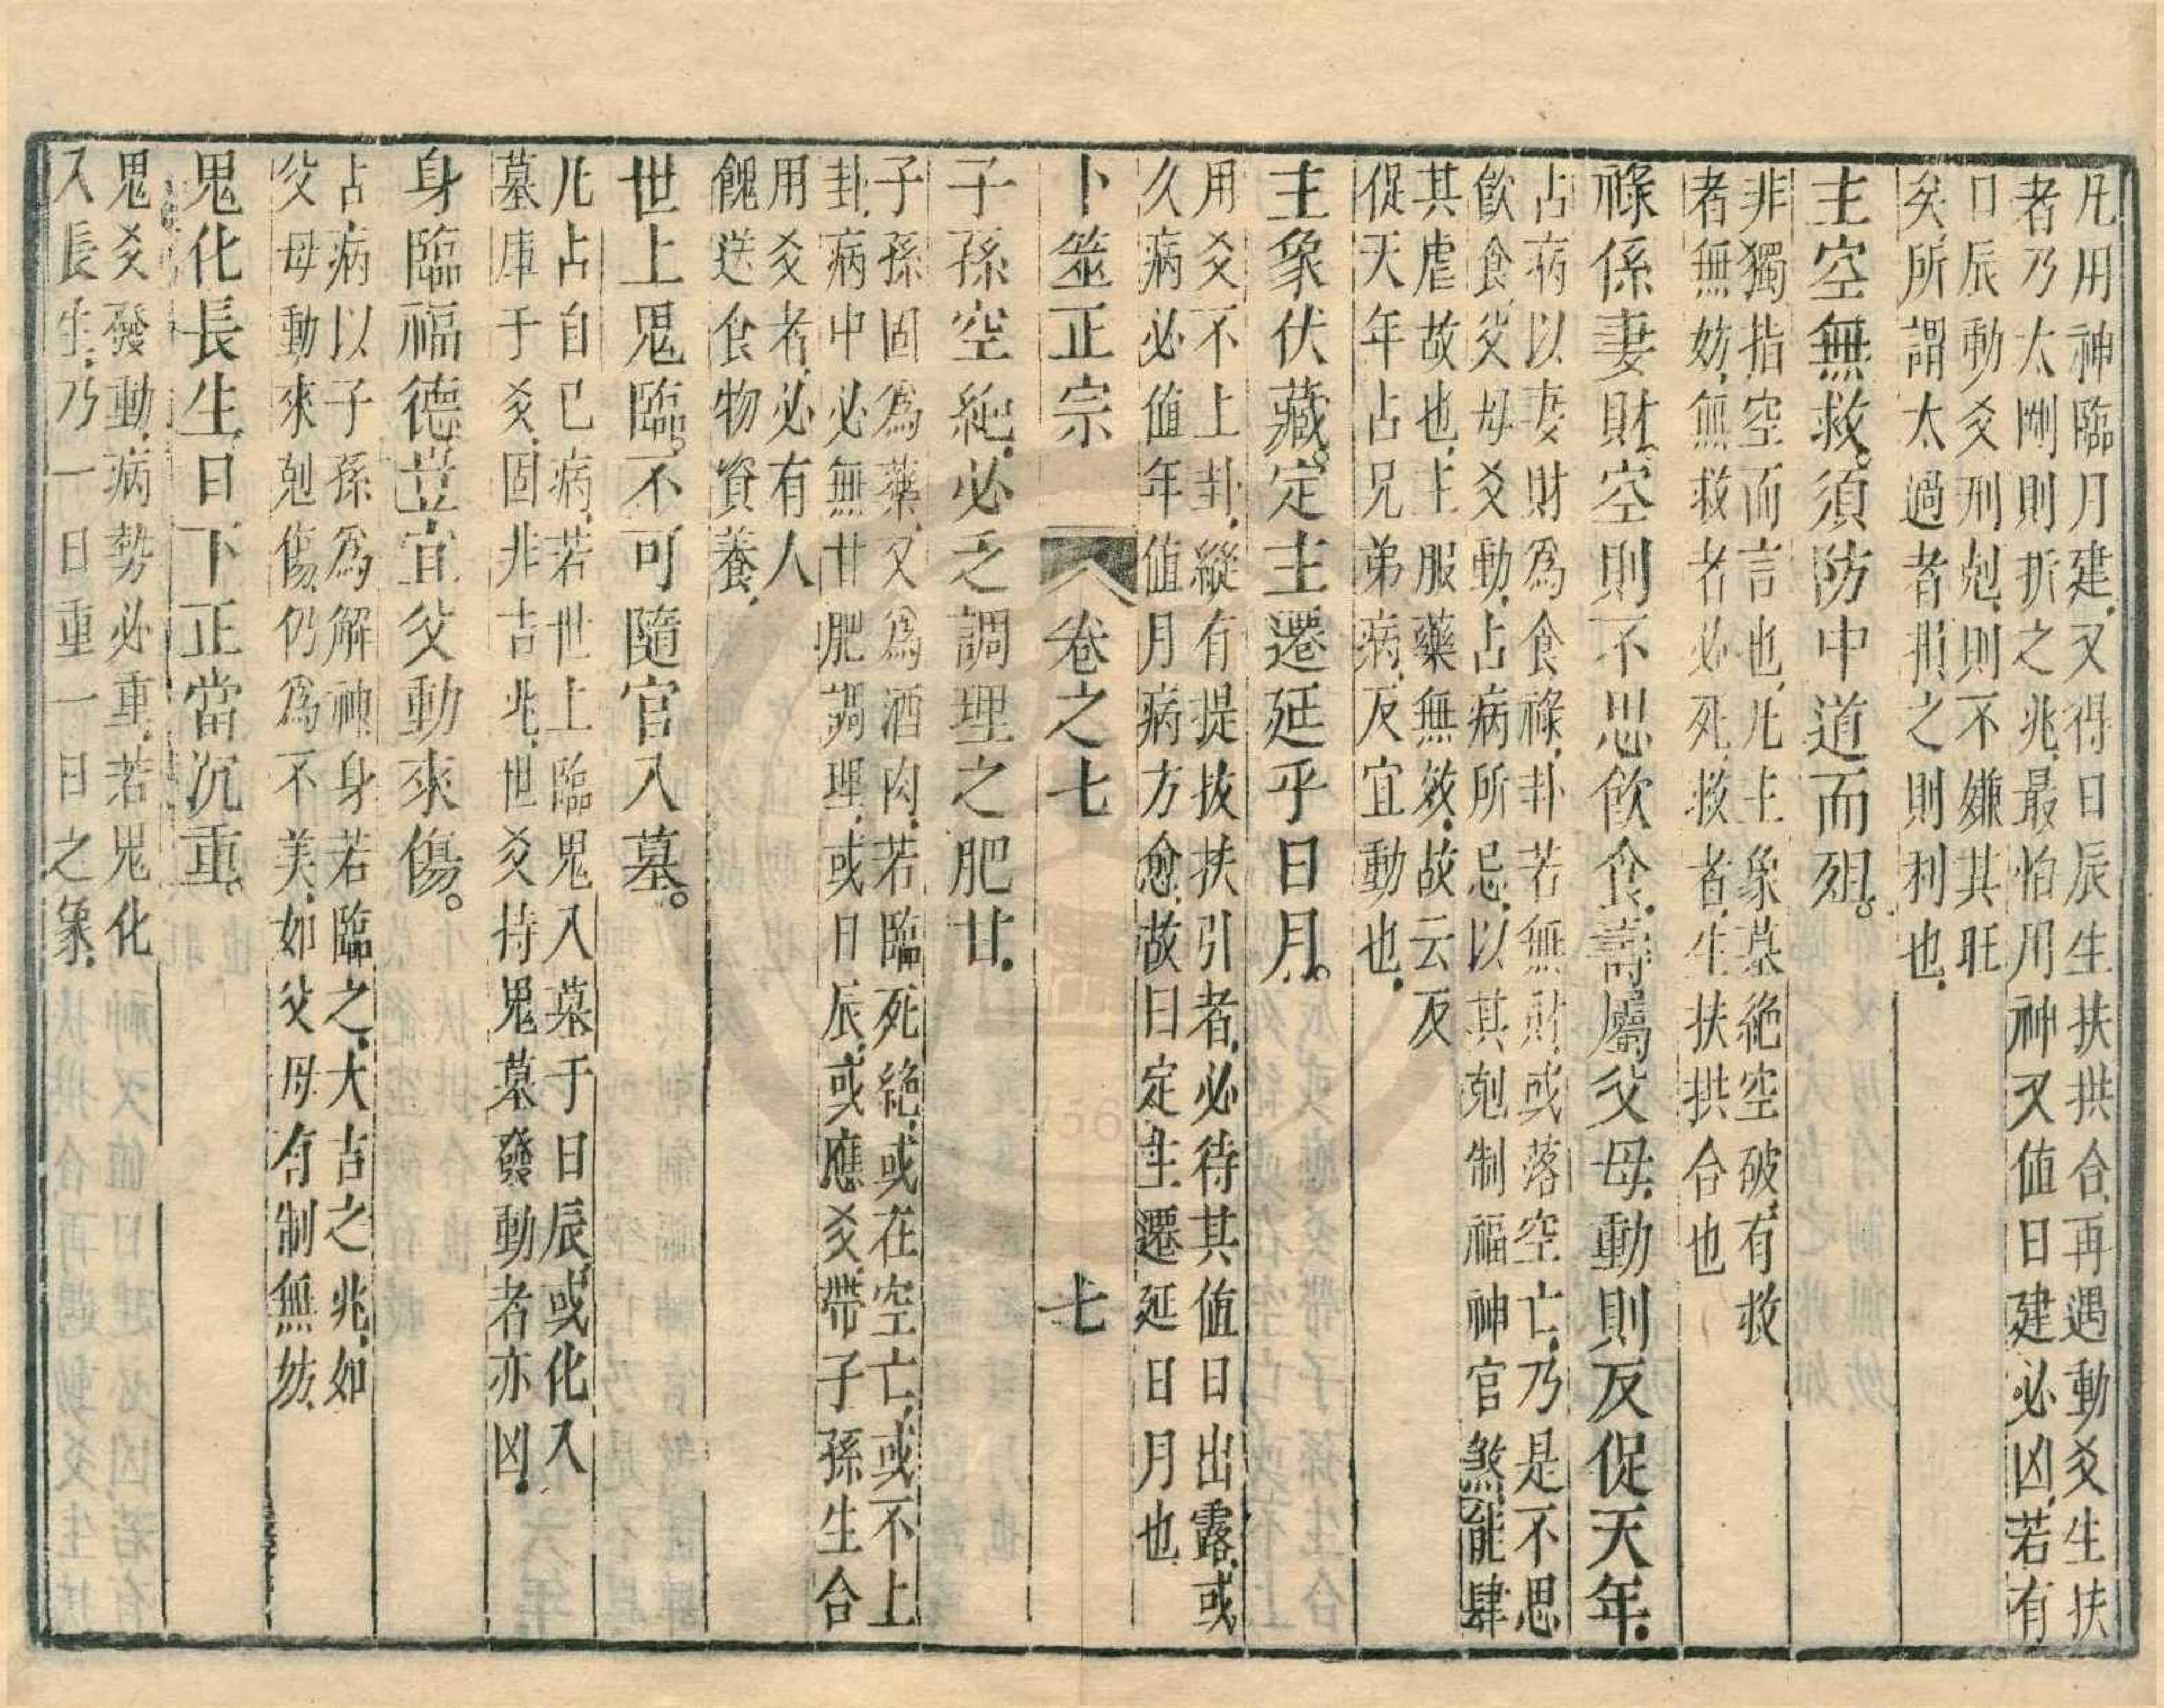 凡用神臨月建又得日辰生扶拱合再遇動爻生扶
者乃太剛則折之兆最怕用神又值日建必凶若有
日辰動爻刑剋則不嫌其旺
矣所謂太過者損之則利也
主空無救須防中道而殂
非獨指空而言也凡主象墓絶空破有救
者無妨無救者必死救者生扶拱合也
祿係妻財空則不思飲食壽屬父母動則反促天年
占病以妻財為食祿卦若無財或落空亡乃是不思
飲食父母爻動占病所忌以其剋制福神官煞能肆
其虐故也主服藥無效故云反
促天年占兄弟病反宜動也
主象伏藏定主遷延乎日月
用爻不上卦縱有提拔扶引者必待其值日出露或
久病必值年值月病方愈故曰定主遷延日月也
卜筮正宗 卷之七 七
子孫空絶必乏調理之肥甘
子孫固為藥又為酒肉若臨死絶或在空亡或不上
卦病中必無甘肥調理或日辰或應爻帶子孫生合
用爻者必有人
餽送食物資養
世上鬼臨不可隨官入墓
凡占自己病若世上臨鬼入墓于日辰或化入
墓庫于爻固非吉兆世爻持鬼墓發動者亦凶
身臨福德豈宜父動來傷
占病以子孫為解神身若臨之大吉之兆如
父母動來剋傷仍為不美如父母有制無妨
鬼化長生日下正當沉重
鬼爻發動病勢必重若鬼化
入長生乃一日重一日之象